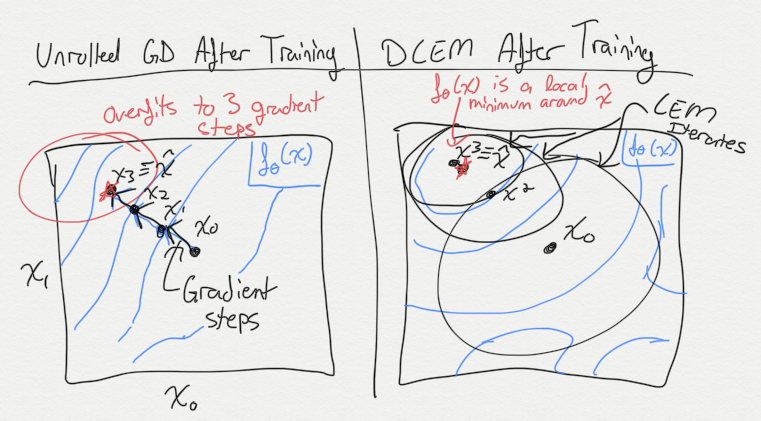 Unrolled GD After Training
Overfits to 3 gradient
steps
fθ(x)
x3 ≡ x̂
x2
x1
x0
Gradient
steps
x1
x0
DCEM After Training
fθ(x) is a local
minimum around x̂
CEM
Iterates
fθ(x)
x3 ≡ x̂
x2
x0